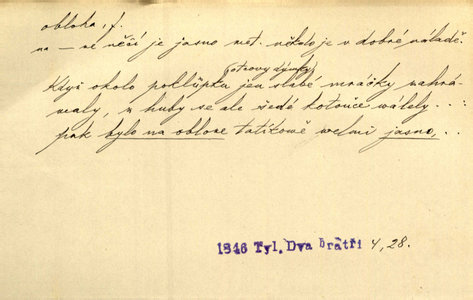 obloha, f.
na — ně něčí je jasno met. někdo je v dobré náladě.
otcovy dýmky
Když okolo pollúpka jen slabé mráčky zahrá-
valy, z huby se ale šedé kotouče válely...
pak bylo na obloze tatíkově velmi jasno,..
1846 Tyl, Dva bratři 4, 28.